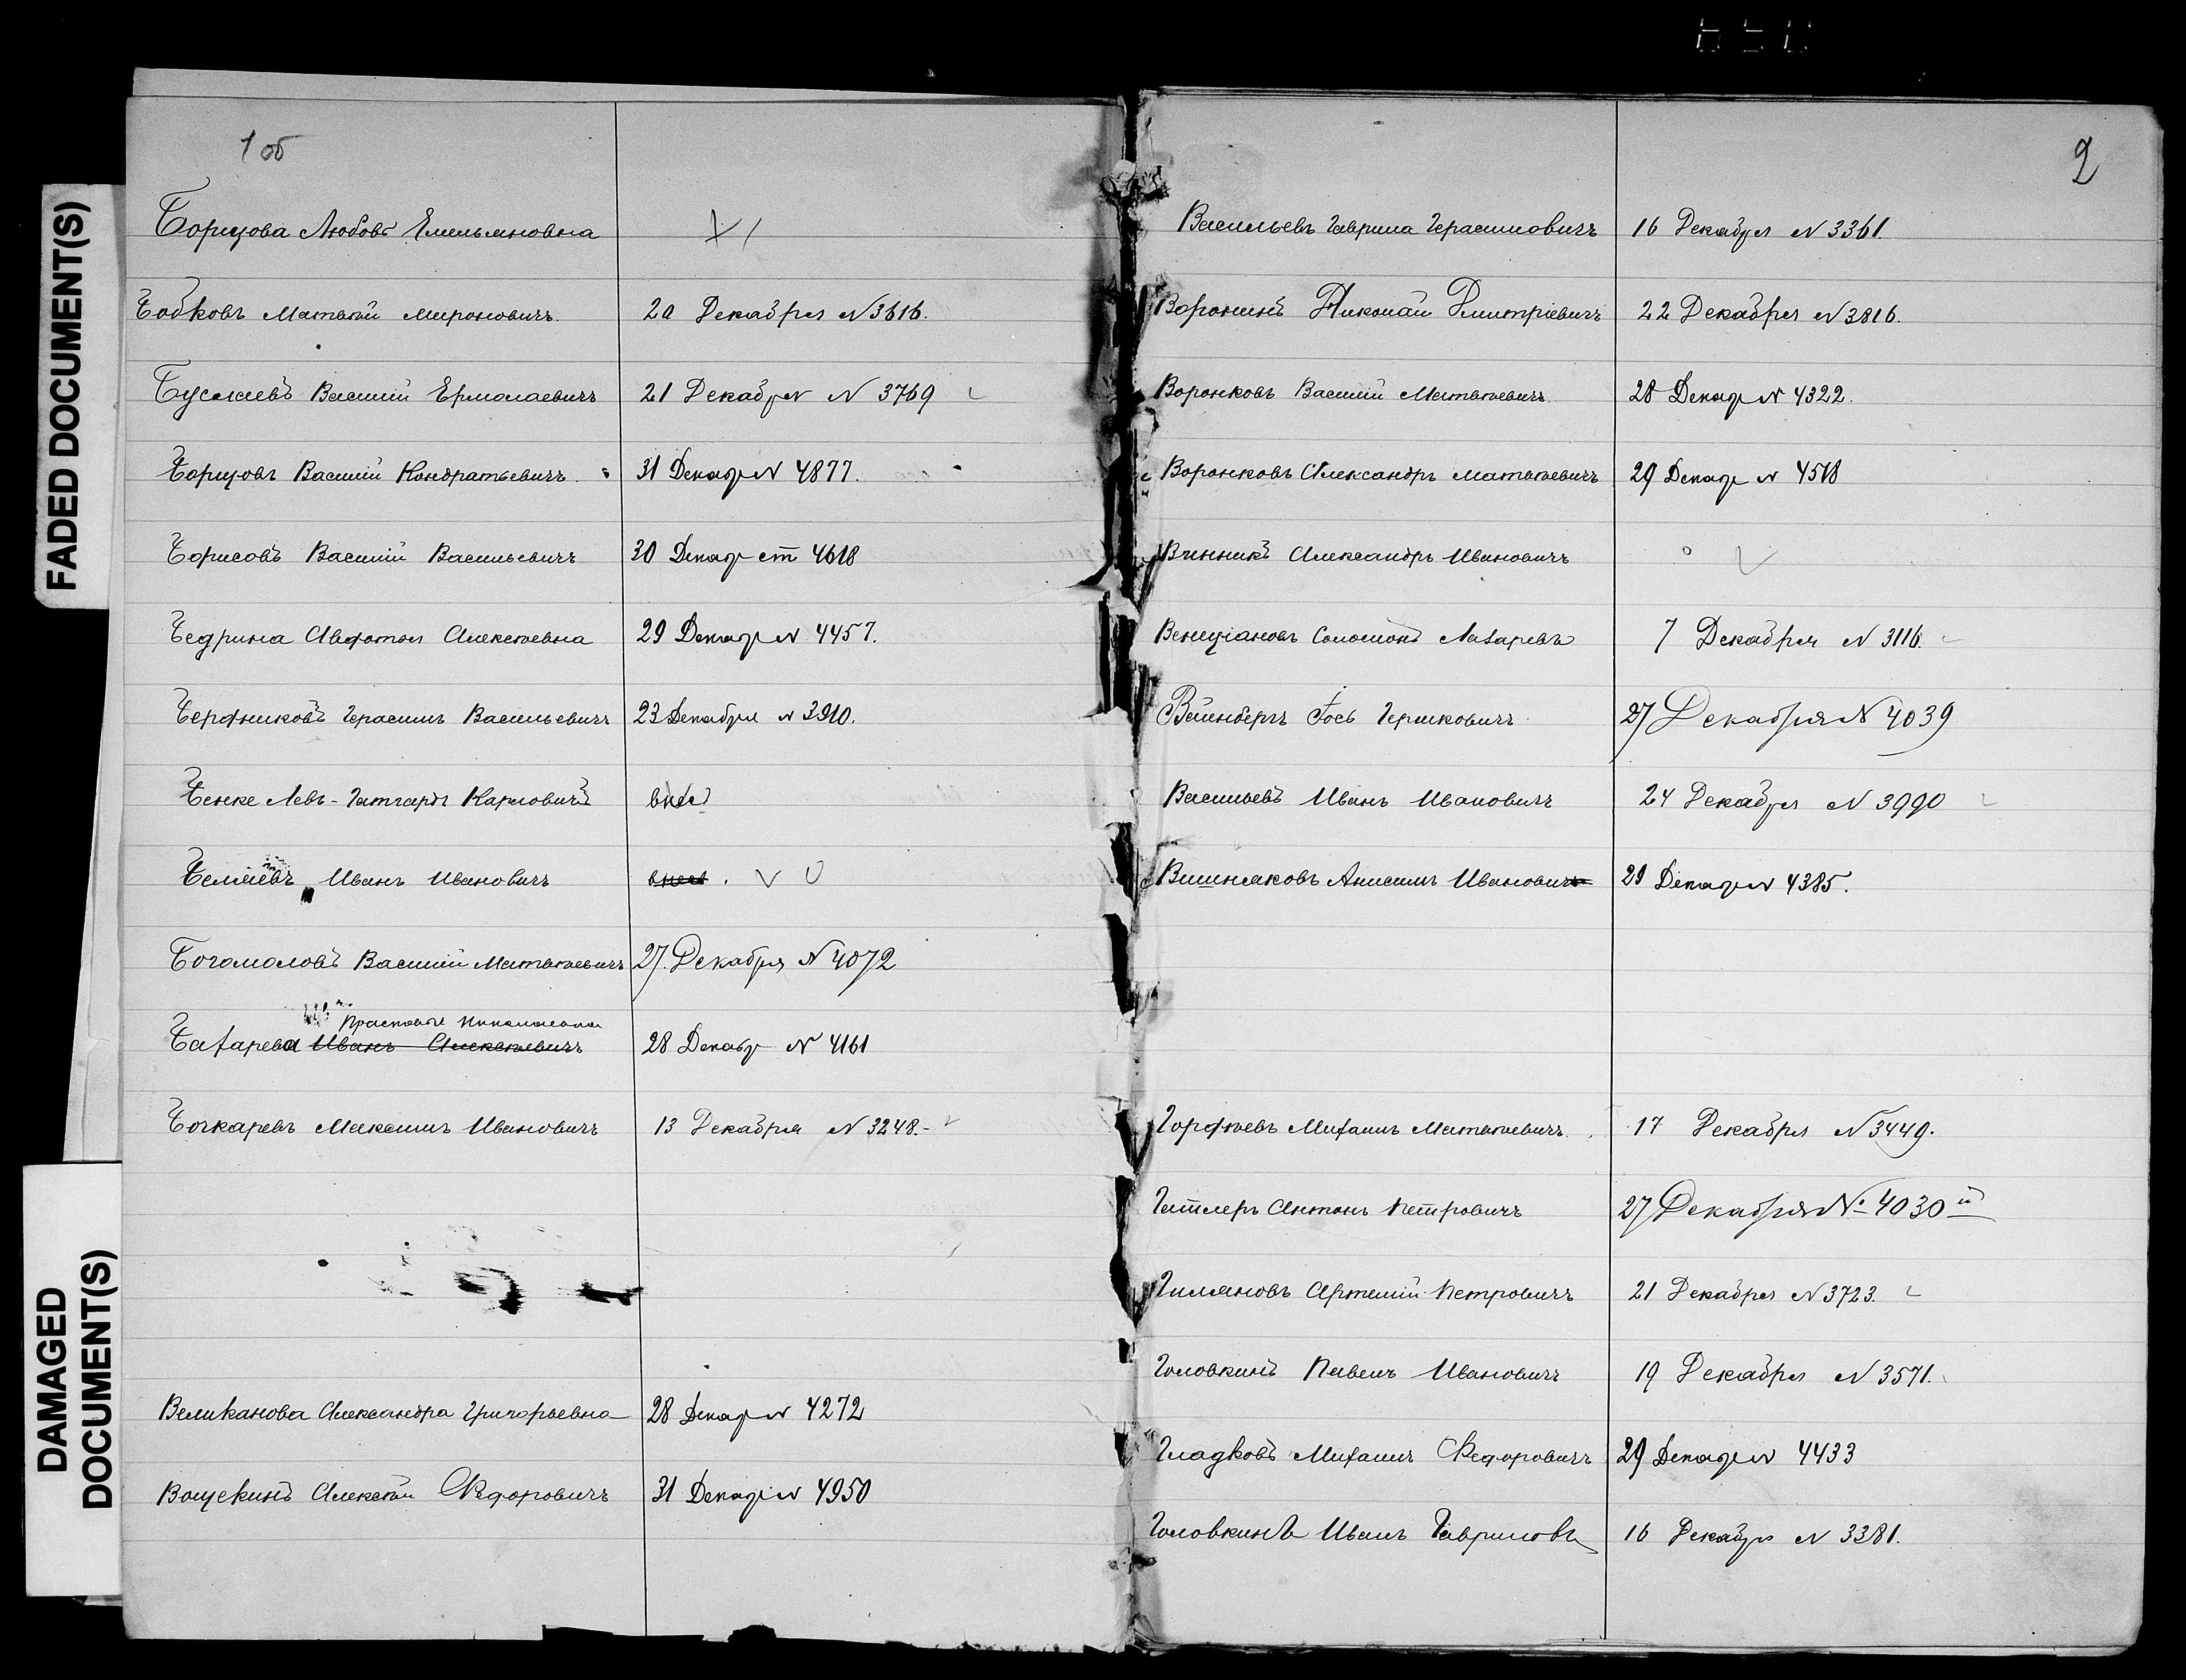 FADED DOCUMENT(S)
DAMAGED DOCUMENT(S)
1 об
Борцова Любовь Емельяновна
Бобковъ Матвѣй Мироновичъ. 20 Декабря N 3616.
Буслаевъ Василій Ермолаевичъ 21 Декабр N 3769
Борцовъ Василій Кондратьевичъ. 31 Декабр N 4877.
Борисовъ Василій Васильевичъ 30 Декабр ст 4618
Бедрина Авдотья Алексѣевна 29 Декабр N 4457.
Бердниковъ Герасимъ Васильевичъ 23 Декабря N 3910.
Бенке Левъ-Готгардъ Карловичъ внес
Иванъ Ивановичъ внесъ.
Богомоловъ Василій Матвѣевичъ 27. Декабря N 4072
Прасковья Николаевна
Бахарева Иванъ Алексѣевичъ 28 Декабр N 4161
Бочкаревъ Максимъ Ивановичъ 13 Декабря N 3248.-
Великанова Александра Григорьевна 28 Декабр N 4272
Вощекинъ Алексѣй Ѳедоровичъ 31 Декабр N 4950
2
Васильевъ Гаврила Герасимовичъ 16 Декабря N 3361.
Воронинъ Николай Дмитріевичъ 22 Декабря N 3816.
Воронковъ Василій Матвѣевичъ 28 Декабр N 4322.
Воронковъ Александръ Матвѣевичъ 29 Декабр N 4518
Винникъ Александръ Ивановичъ
Венеціановъ Соломонъ Лазаревъ 7 Декабря N 3116.
Вайнбергъ Іось Гершковичъ 27 Декабря N 4039
Васильевъ Иванъ Ивановичъ 24 Декабря N 3990
Вишняковъ Анисимъ Ивановичъ 29 Декабр N 4385.
Гордѣевъ Михаилъ Матвѣевичъ. 17 Декабря N 3449.
Гитлеръ Антонъ Петровичъ 27 Декабря № 4030й
Гиляновъ Артемій Петровичъ 21 Декабря N 3723.
Головкинъ Павелъ Ивановичъ 19 Декабря N 3571.
Гладковъ Михаилъ Ѳедоровичъ 29 Декабр N 4433
Головкинъ Иванъ Гавриловъ 16 Декабря N 3381.